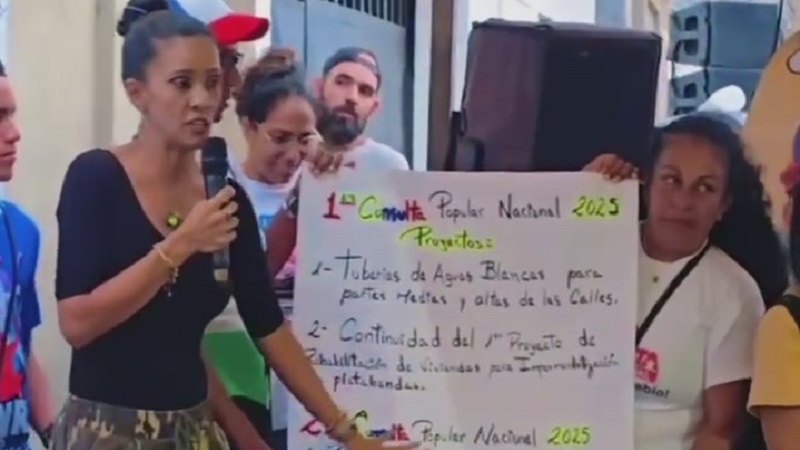 1era Consulta Popular Nacional 2025
Proyectos:
1- Tuberias de Aguas Blancas para
partes Medias y altas de las Calles.
2- Continuidad del 1er Proyecto de
Rehabilitación de Viviendas para Impermeabilización
platabandas.
Consulta Popular Nacional 2025